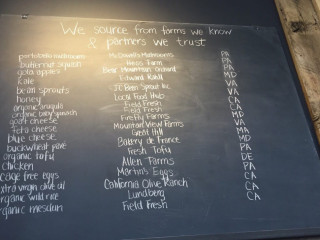 We source from farms we know
& partners we trust
portobello mushrooms McDowell's Mushrooms PA
butternut squash Farm PA
gold apples Bear Mountain Orchard PA
kale Edward Kroll MD
bean sprouts JC Bean Sprout Inc VA
honey Local Food Hub VA
organic arugula Field Fresh CA
organic baby spinach Field Fresh CA
goat cheese Firefly Farms MD
feta cheese Mountain View Farms VA
blue cheese Great Hill MA
buckwheat pavé Boulangerie de France MD
organic tofu Fresh Tofu PA
chicken Allen Farms DE
cage free eggs Martin's Eggs PA
extra virgin olive oil California Olive Ranch CA
organic wild rice Lundberg CA
organic mesclun Field Fresh CA